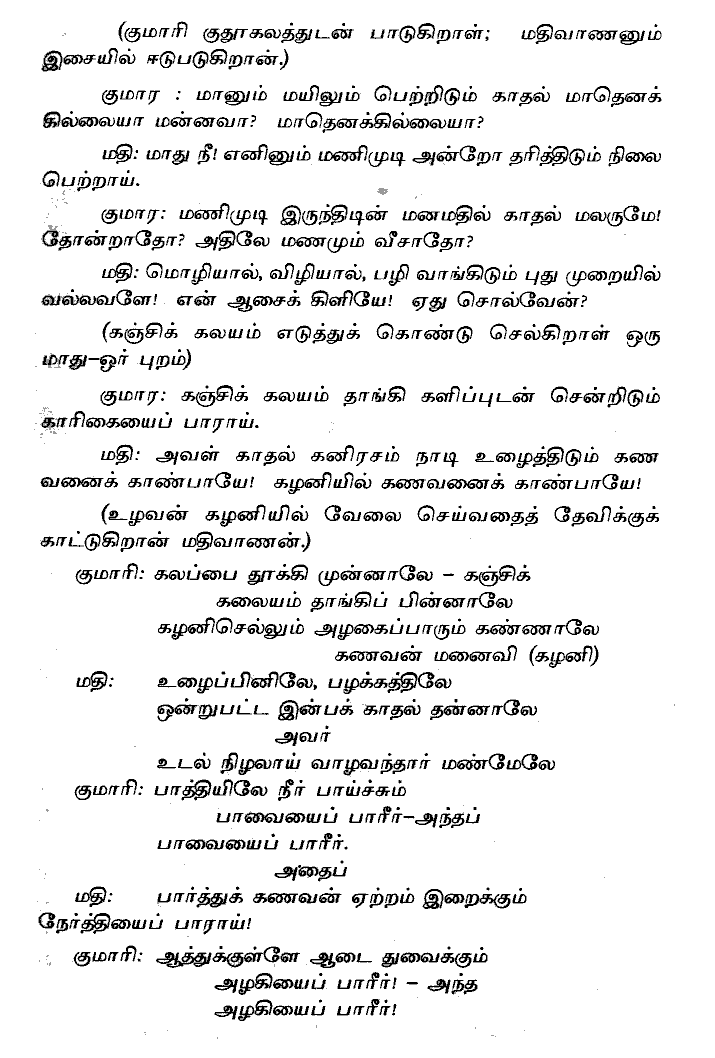 (குமாரி குதூகலத்துடன் பாடுகிறாள்; மதிவாணனும்
இசையில் ஈடுபடுகிறான்.)
குமார : மானும் மயிலும் பெற்றிடும் காதல் மாதெனக்
கில்லையா மன்னவா? மாதெனக்கில்லையா?
மதி: மாது நீ! எனினும் மணிமுடி அன்றோ தரித்திடும் நிலை
பெற்றாய்.
குமார: மணிமுடி இருந்திடின் மனமதில் காதல் மலருமே!
தோன்றாதோ? அதிலே மணமும் வீசாதோ?
மதி: மொழியால், விழியால், பழி வாங்கிடும் புது முறையில்
வல்லவளே! என் ஆசைக் கிளியே! ஏது சொல்வேன்?
(கஞ்சிக் கலயம் எடுத்துக் கொண்டு செல்கிறாள் ஒரு
மாது–ஓர் புறம்)
குமார: கஞ்சிக் கலயம் தாங்கி களிப்புடன் சென்றிடும்
காரிகையைப் பாராய்.
மதி: அவள் காதல் கனிரசம் நாடி உழைத்திடும் கண
வனைக் காண்பாயே! கழனியில் கணவனைக் காண்பாயே!
(உழவன் கழனியில் வேலை செய்வதைத் தேவிக்குக்
காட்டுகிறான் மதிவாணன்.)
குமாரி: கலப்பை தூக்கி முன்னாலே – கஞ்சிக்
கலையம் தாங்கிப் பின்னாலே
கழனிசெல்லும் அழகைப்பாரும் கண்ணாலே
கணவன் மனைவி (கழனி)
மதி: உழைப்பினிலே, பழக்கத்திலே
ஒன்றுபட்ட இன்பக் காதல் தன்னாலே
அவர்
உடல் நிழலாய் வாழவந்தார் மண்மேலே
குமாரி: பாத்தியிலே நீர் பாய்ச்சும்
பாவையைப் பாரீர்–அந்தப்
பாவையைப் பாரீர்.
அதைப்
மதி: பார்த்துக் கணவன் ஏற்றம் இறைக்கும்
நேர்த்தியைப் பாராய்!
குமாரி: ஆத்துக்குள்ளே ஆடை துவைக்கும்
அழகியைப் பாரீர்! – அந்த
அழகியைப் பாரீர்!